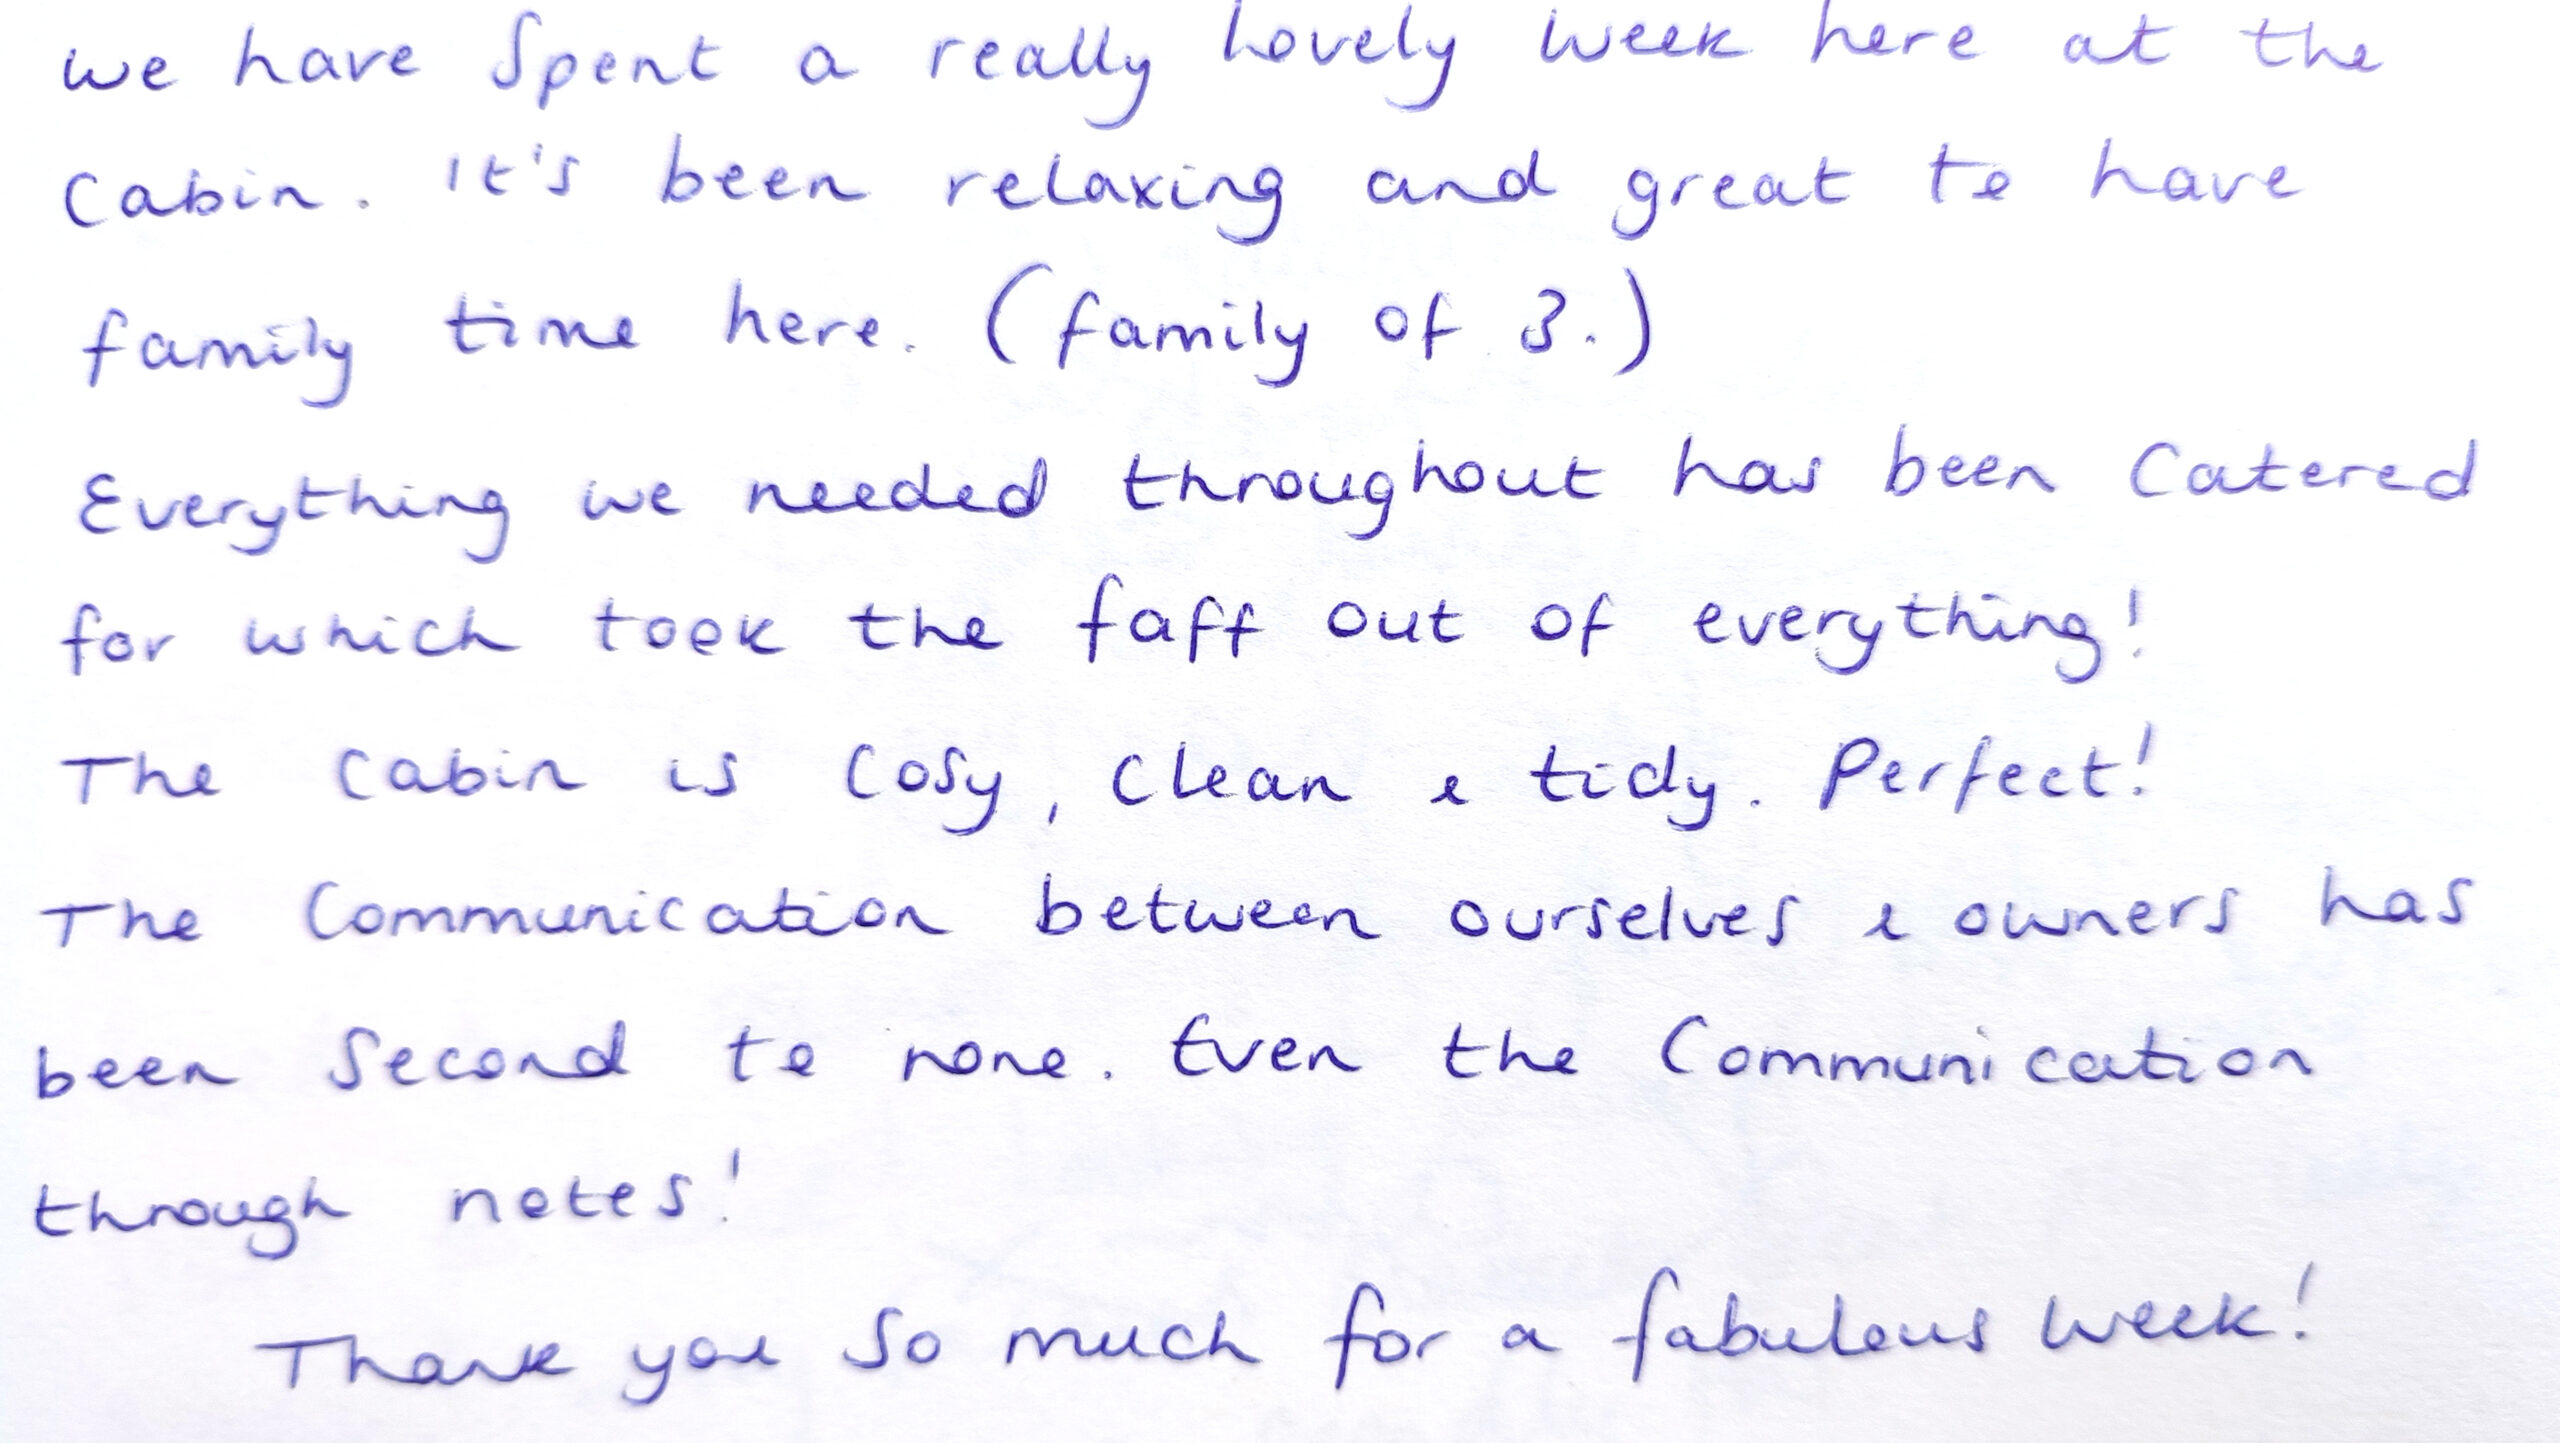 we have Spent a really lovely week here at the
Cabin. It's been relaxing and great to have
family time here. (family of 3.)
Everything we needed throughout has been Catered
for which took the faff out of everything!
The Cabin is Cosy, Clean & tidy. Perfect!
The Communication between ourselves & owners has
been Second to none. Even the Communication
through notes!
Thank you So much for a fabulous week!